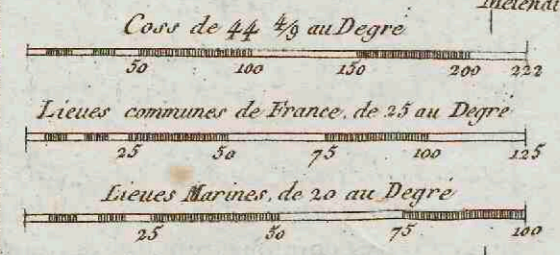 Coss de 44 4/9 au Degré
50 100 150 200 222
Lieues communes de France, de 25 au Degré
25 50 75 100 125
Lieues Marines, de 20 au Degré
25 50 75 100